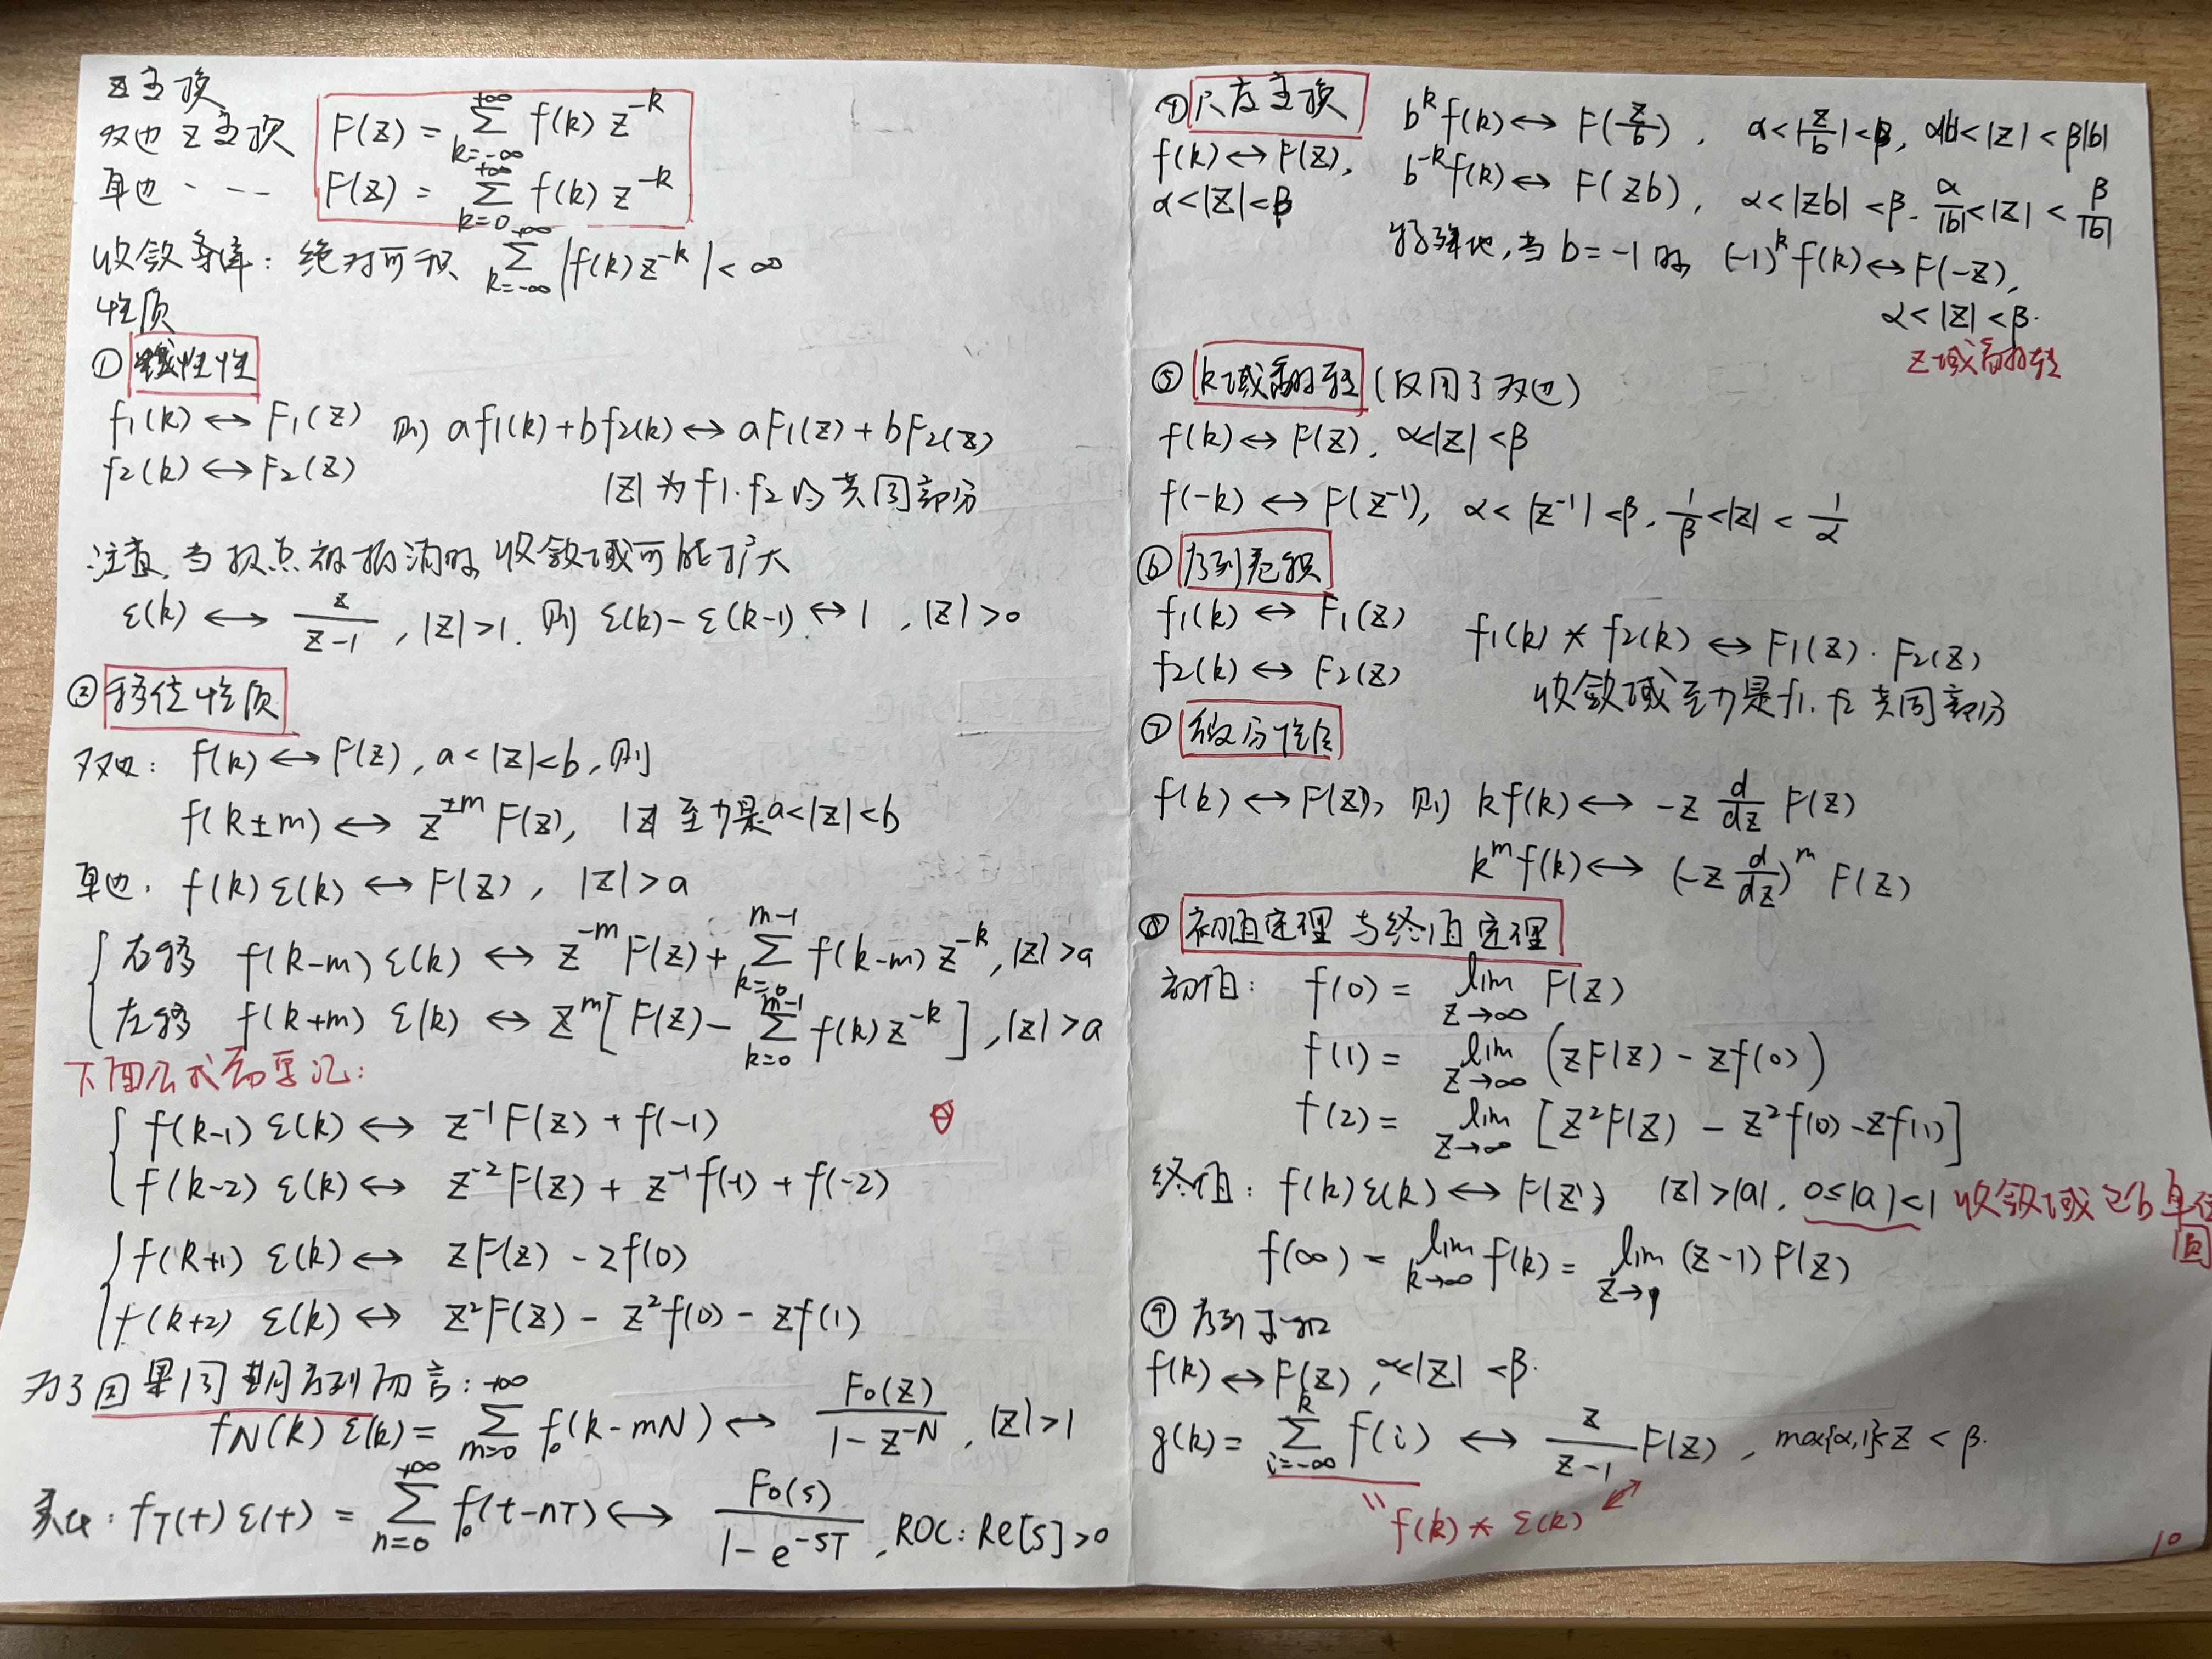 Z变换
双边Z变换 F(z) = ∑_{k=-∞}^{+∞} f(k) z^{-k}
单边 - -- F(z) = ∑_{k=0}^{+∞} f(k) z^{-k}
收敛条件: 绝对可积 ∑_{k=-∞}^{+∞} |f(k) z^{-k}| < ∞
性质
① 线性性
f1(k) ↔ F1(z) 则 a f1(k) + b f2(k) ↔ a F1(z) + b F2(z)
f2(k) ↔ F2(z) |z| 为 f1. f2 的共同部分
注意, 当极点被抵消时, 收敛域可能扩大
ε(k) ↔ z/(z-1), |z|>1. 则 ε(k) - ε(k-1) ↔ 1, |z|>0
② 移位性质
双边: f(k) ↔ F(z), a<|z|<b, 则
f(k±m) ↔ z^{±m} F(z), |z| 至少是 a<|z|<b
单边. f(k) ε(k) ↔ F(z), |z|>a
右移 f(k-m) ε(k) ↔ z^{-m} F(z) + ∑_{k=0}^{m-1} f(k-m) z^{-k}, |z|>a
左移 f(k+m) ε(k) ↔ z^m [F(z) - ∑_{k=0}^{m-1} f(k) z^{-k}], |z|>a
下面公式需要记:
f(k-1) ε(k) ↔ z^{-1} F(z) + f(-1)
f(k-2) ε(k) ↔ z^{-2} F(z) + z^{-1} f(-1) + f(-2)
f(k+1) ε(k) ↔ zF(z) - zf(0)
f(k+2) ε(k) ↔ z²F(z) - z²f(0) - zf(1)
对于因果周期序列而言:
f_N(k) ε(k) = ∑_{m=0}^{+∞} f_0(k-mN) ↔ F_0(z)/(1-z^{-N}), |z|>1
类比: f_T(t) ε(t) = ∑_{n=0}^{+∞} f_0(t-nT) ↔ F_0(s)/(1-e^{-sT}), ROC: Re[s]>0
④ 尺度变换 b^k f(k) ↔ F(z/b), α<|z/b|<β, α|b|<|z|<β|b|
f(k) ↔ F(z), b^{-k} f(k) ↔ F(zb), α<|zb|<β. α/|b|<|z|<β/|b|
α<|z|<β
特殊地, 当 b=-1 时, (-1)^k f(k) ↔ F(-z),
α<|z|<β.
z域翻转
⑤ k域翻转 (仅用于双边)
f(k) ↔ F(z), α<|z|<β
f(-k) ↔ F(z^{-1}), α<|z^{-1}|<β, 1/β<|z|<1/α
⑥ 序列卷积
f1(k) ↔ F1(z) f1(k) * f2(k) ↔ F1(z) · F2(z)
f2(k) ↔ F2(z) 收敛域至少是 f1. f2 共同部分
⑦ 微分性质
f(k) ↔ F(z), 则 kf(k) ↔ -z d/dz F(z)
k^m f(k) ↔ (-z d/dz)^m F(z)
⑧ 初值定理与终值定理
初值: f(0) = lim_{z→∞} F(z)
f(1) = lim_{z→∞} (zF(z) - zf(0))
f(2) = lim_{z→∞} [z²F(z) - z²f(0) - zf(1)]
终值: f(k)ε(k) ↔ F(z) |z|>|a|, 0≤|a|<1 收敛域包含单位圆
f(∞) = lim_{k→∞} f(k) = lim_{z→1} (z-1) F(z)
⑨ 序列求和
f(k) ↔ F(z), α<|z|<β.
g(k) = ∑_{i=-∞}^{k} f(i) ↔ z/(z-1) F(z), max{α,1}<z<β.
" f(k) * ε(k)
10